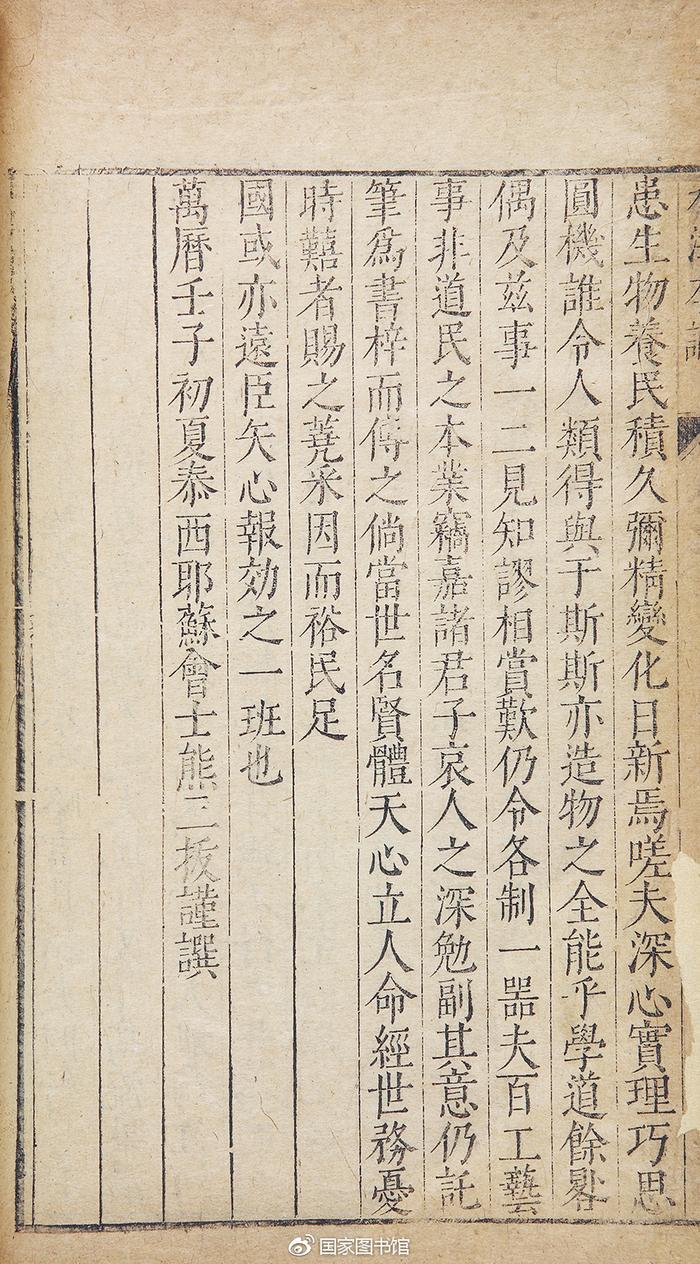 患生物養民積久彌精變化日新焉嗟夫深心實理巧思
圓機誰令人類得與于斯斯亦造物之全能乎學道餘晷
偶及茲事一二見知謬相賞歎仍令各制一噐夫百工藝
事非道民之本業竊嘉諸君子哀人之深勉副其意仍託
筆為書梓而傳之倘當世名賢體天心立人命經世務憂
時囏者賜之蕘采因而裕民足
國或亦遠臣矢心報効之一班也
萬曆壬子初夏泰西耶蘇會士熊三拔謹譔
国家图书馆